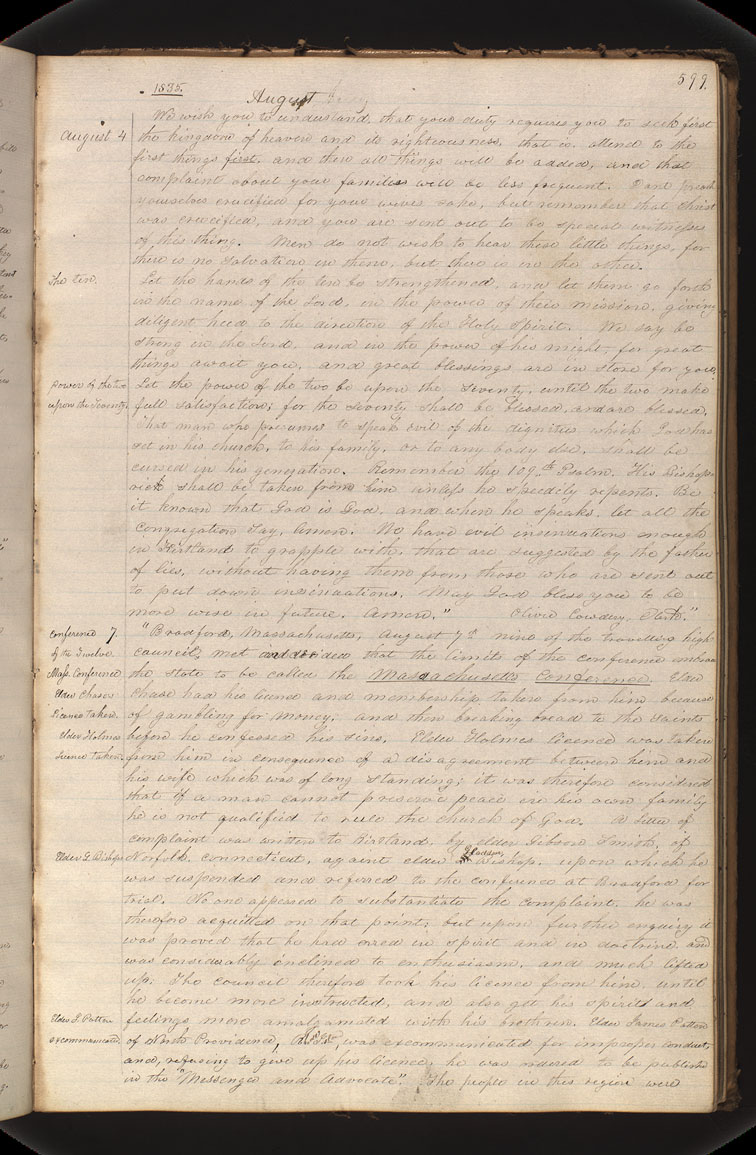 599.
1835.
August
We wish you to understand, that your duty requires you to seek first
August 4
the kingdom of heaven and its righteousness, that is, attend to the
first things first, and then all things will be added, and that
complaint about your families will be less frequent. Dont preach
yourselves crucified for your wives sake, but remember that Christ
was crucified, and you are sent out to be special witnesses
of this thing. Men do not wish to hear these little things, for
there is no salvation in them, but there is in the other.
The ten.
Let the hands of the ten be strengthened, and let them go forth
in the name of the Lord, in the power of their mission, giving
diligent heed to the direction of the Holy Spirit. We say be
strong in the Lord, and in the power of his might, for great
things await you, and great blessings are in store for you.
power of the two
Let the power of the two be upon the seventy, until the two make
upon the Seventy.
full satisfaction; for the seventy shall be blessed, and are blessed.
That man who presumes to speak evil of the dignities which God has
set in his church, to his family, or to any body else, shall be
cursed in his generation. Remember the 109th Psalm. His Bishop-
rick shall be taken from him unless he speedily repents. Be
it known that God is God, and when he speaks, let all the
congregation say, Amen. We have evil insinuations enough
in Kirtland to grapple with, that are suggested by the father
of lies, without having them from those who are sent out
to put down insinuations. May God bless you to be
more wise in future. Amen." Oliver Cowdery, Clerk."
conference 7.
"Bradford, Massachusetts, August 7th nine of the travelling high
of the Twelve
council, met and decided that the limits of the conference embrace
Mass. Conference
the state to be called the Massachusetts Conference. Elder
Elder Chase's
Chase had his licence and membership taken from him because
licence taken.
of gambling for money; and then breaking bread to the saints
Elder Holmes
before he confessed his sins. Elder Holmes licence was taken
licence taken.
from him in consequence of a disagreement between him and
his wife which was of long standing; it was therefore considered
that if a man cannot preserve peace in his own family
he is not qualified to rule the church of God. A letter of
complaint was written to Kirtland, by elder Gibson Smith, of
Elder G. Bishop
Norfolk, connecticut, against elder Gladden Bishop, upon which he
was suspended and referred to the conference at Bradford for
trial. No one appeared to substantiate the complaint, he was
therefore acquitted on that point; but upon further enquiry it
was proved that he had erred in spirit and in doctrine and
was considerably inclined to enthusiasm, and much lifted
up. The council therefore took his licence from him, until
he become more instructed, and also get his spirits and
Elder J. Patten
feelings more amalgamated with his brethren. Elder James Patten
excommunicated
of North Providence, was excommunicated for improper conduct,
and, refusing to give up his licence, he was ordered to be published
in the "Messenger and Advocate". The people in this region were